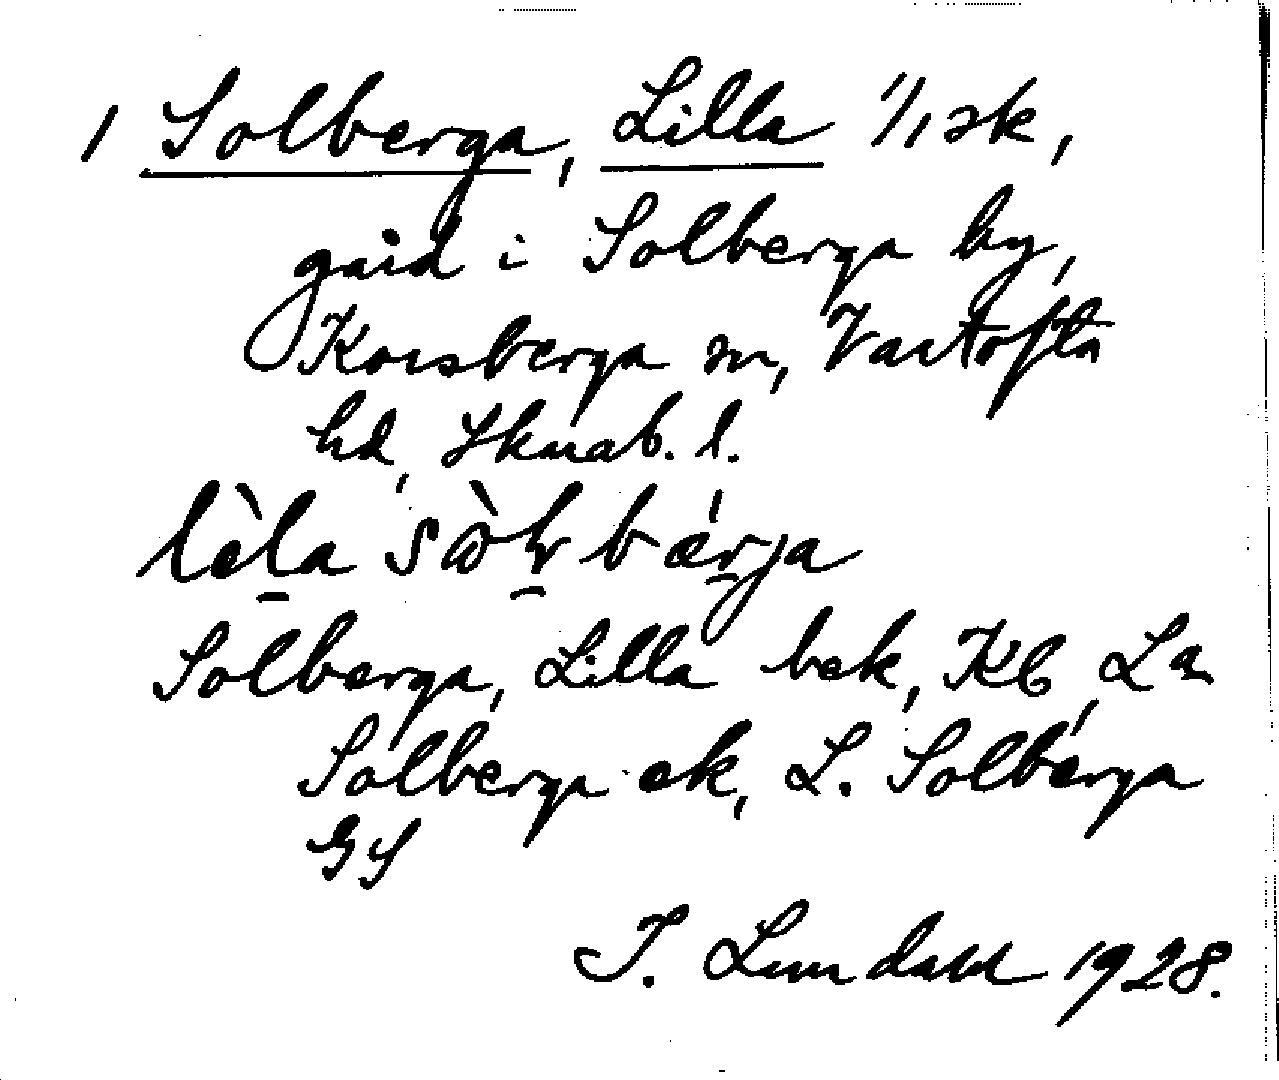 1 Solberga, Lilla 1/1 sk,
gård i Solberga by,
Korsberga sn, Vartofta
hd, Skarab. l.
lèla sò̀ḷbǽrja
Solberga, Lilla bek, Kb, La
Solberga ek, L. Solberga
GS
I. Lundahl 1928.